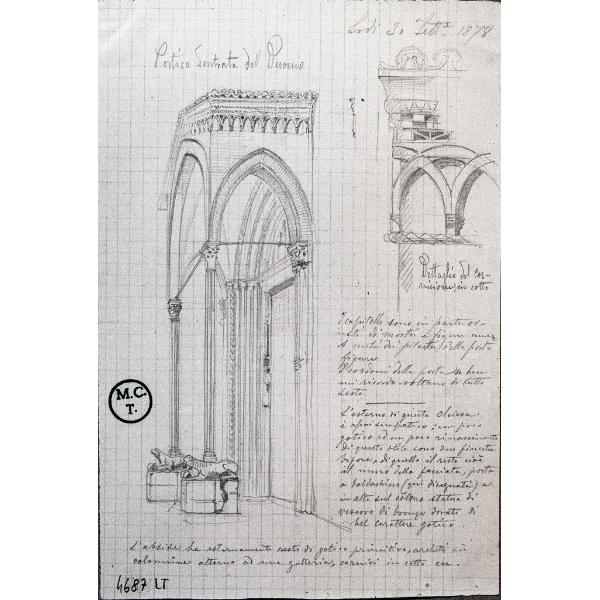 Lodi 30 Sett.e 1878
Portico d'entrata del Duomo
Dettaglio del cor-
nicione in cotto
I capitelli sono in parte or-
nati di mostri e figure
metà dei pilastri della porta
figure
I cordoni della porta se ben
mi ricordo voltano di tutto
sesto
L'esterno di questa chiesa
è assai simpatico; un poco
gotico ed un poco rinascimento
di questo stile sono due finestre
bifore, di quello il resto cioè
il muro della facciata, porta
a baldacchino (qui disegnata) e
in alto sul colmo statua di
vescovo di bronzo dorato di
bel carattere gotico
L'abside ha esternamente resti di gotico primitivo, archetti su
colonnine attorno ad una galleria, cornici in cotto ecc.
M.C.
T.
4687 LT